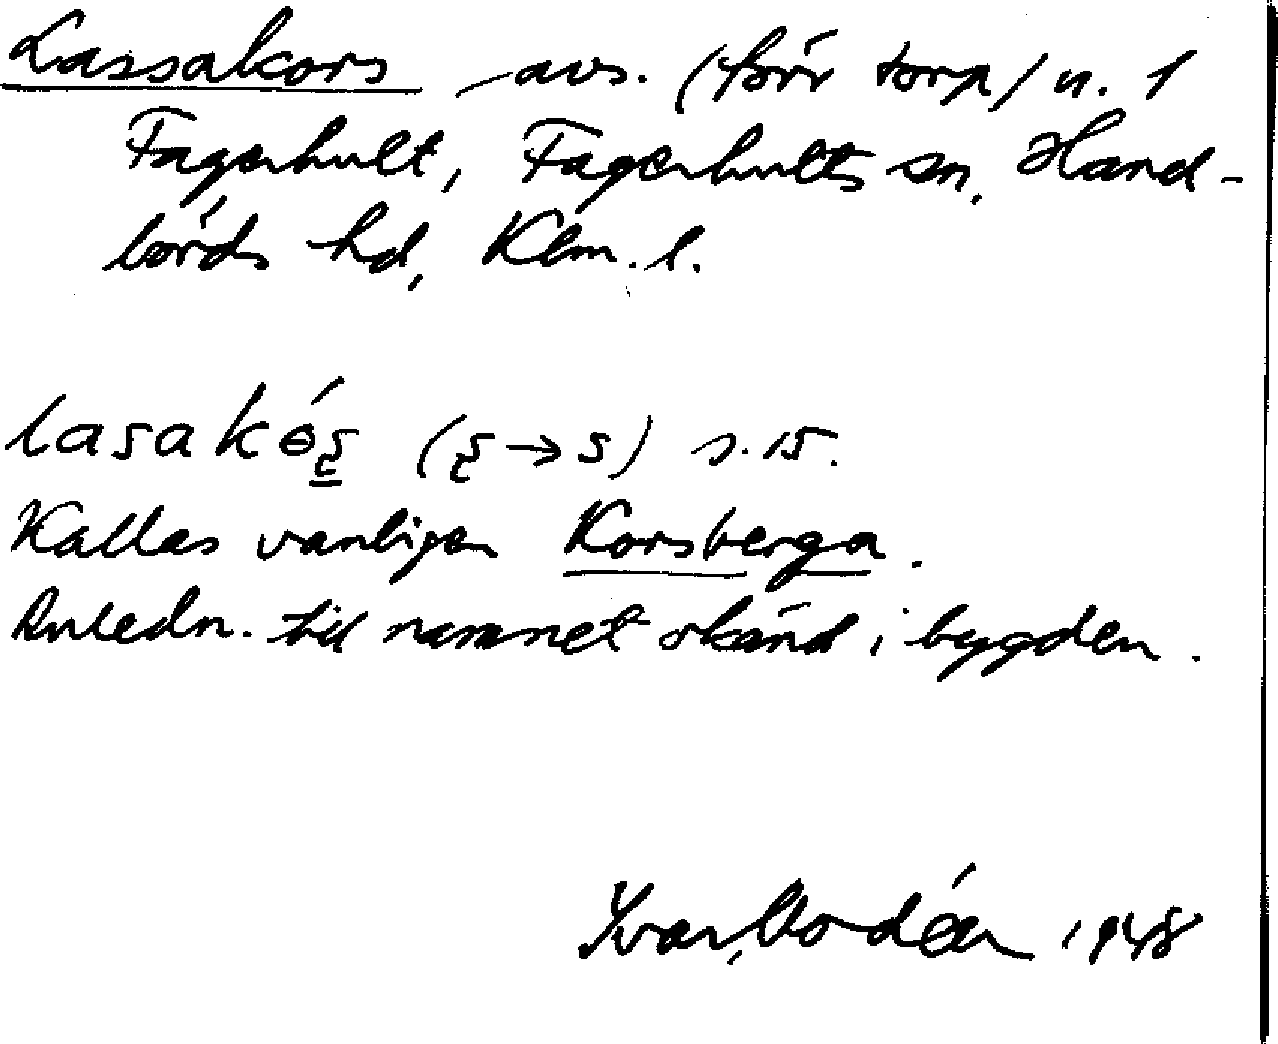 Lassakors avs. (förr torp) n. 1
Fagerhult, Fagerhults sn, Hand-
börds hd, Klm. l.
lasakós̱ (s̨→s) s. 15.
Kallas vanligen Korsberga.
Anledn. till namnet okänd i bygden.
Ivar Modéer 1948